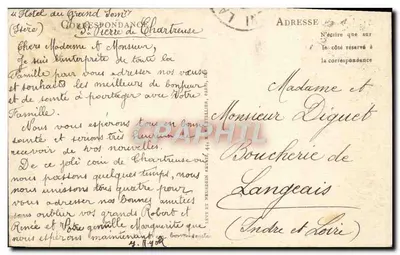 "Hotel du Grand Som"
(Isère)
CORRESPONDANCE
St Pierre de Chartreuse
Chers Madame et Monsieur,
Je suis l'interprète de toute la
famille pour vous adresser nos vœux
et souhaits les meilleurs de bonheur
et de santé à partager avec Votre
Famille.
Nous vous espérons tous en bonne
santé et serions très heureux de
recevoir de vos nouvelles.
De ce joli coin de Chartreuse où
nous passons quelques temps, nous
nous unissons tous quatre pour
vous adresser nos bonnes amitiés
sans oublier vos grands Robert et
Renée et Votre gentille Marguerite que
nous espérons maintenant
ADRESSE
N'écrire que sur
le côté réservé à
la correspondance
Madame et
Monsieur Diguet
Boucherie de
Langeais
(Indre et Loire)
CPARAMA.COM